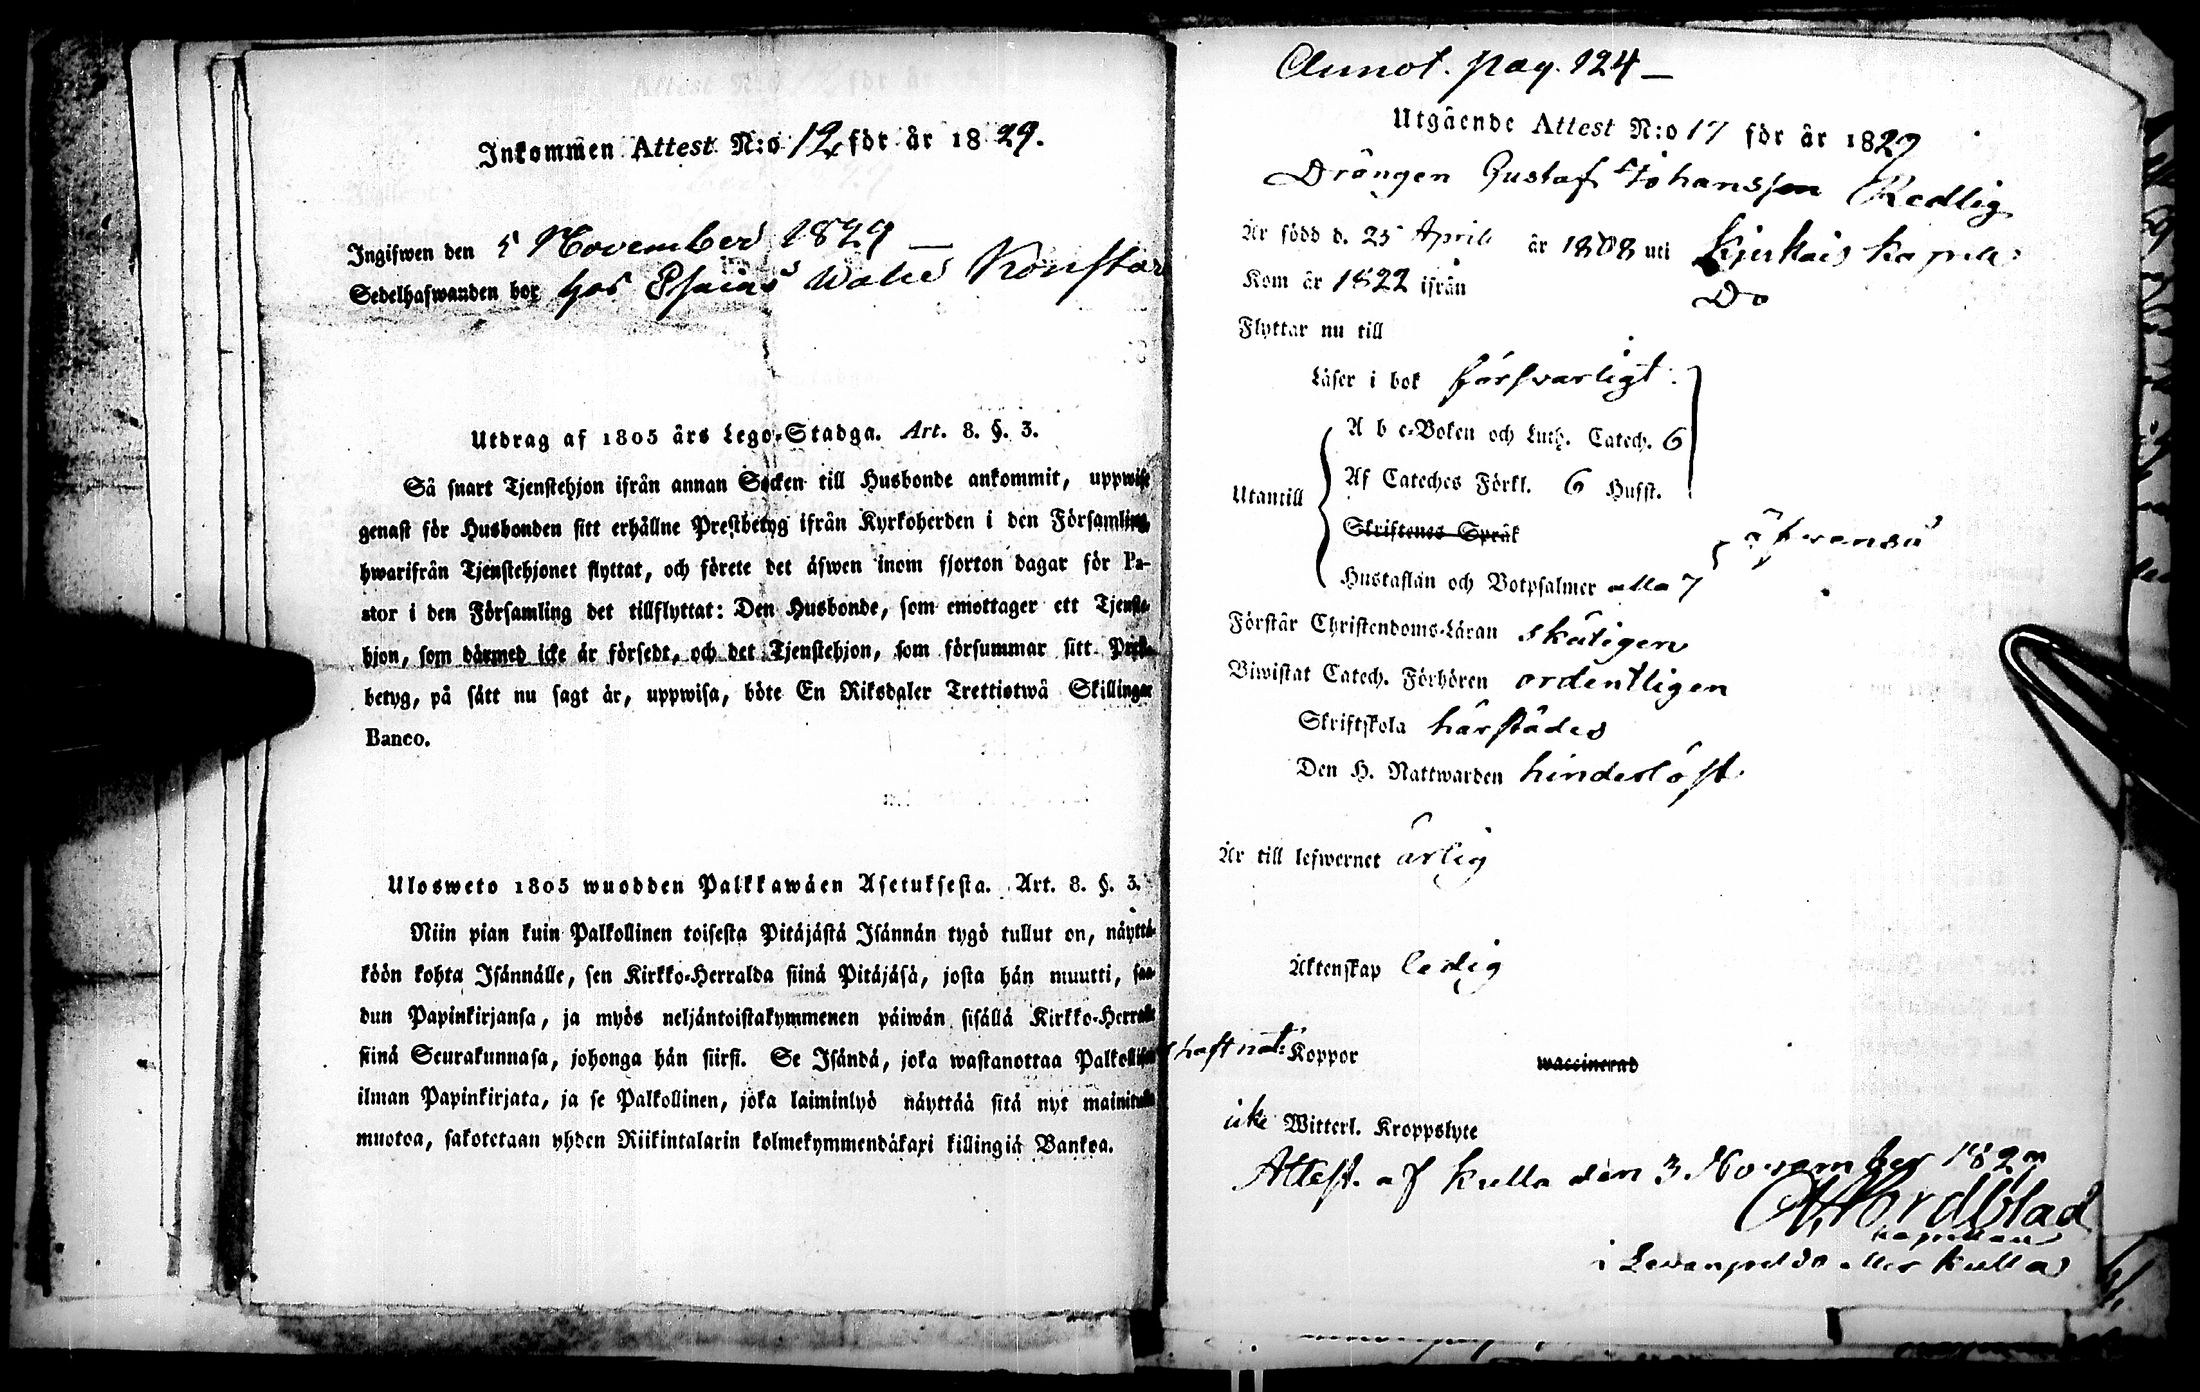 Inkommen Attest N:o 12 för år 1829.
Ingifwen den 5 November 1829 —
Sedelhafwanden bor hos
Utdrag af 1805 års Lego-Stadga. Art. 8. §. 3.
Så snart Tjenstehjon ifrån annan Socken till Husbonde ankommit, uppwise
genast för Husbonden sitt erhållne Prestbetyg ifrån Kyrkoherden i den Församling,
hwarifrån Tjenstehjonet flyttat, och förete det äfwen inom fjorton dagar för Pa-
stor i den Församling det tillflyttat: Den Husbonde, som emottager ett Tjenste-
hjon, som därmed icke är försedt, och det Tjenstehjon, som försummar sitt Prest-
betyg, på sätt nu sagt är, uppwisa, böte En Riksdaler Trettiotwå Skillingar
Banco.
Ulosweto 1805 wuodden Palkkawäen Asetuksesta. Art. 8. §. 3.
Niin pian kuin Palkollinen toisesta Pitäjästä Isännän tygö tullut on, näyttä-
köön kohta Isännälle, sen Kirkko-Herralda siinä Pitäjäsä, josta hän muutti, saa-
dun Papinkirjansa, ja myös neljäntoistakymmenen päiwän sisällä Kirkko-Herralle
siinä Seurakunnasa, johonga hän siirsi. Se Isändä, joka wastanottaa Palkollisen
ilman Papinkirjata, ja se Palkollinen, joka laiminlyö näyttää sitä nyt mainitulla
muotoa, sakotetaan yhden Riikintalarin kolmekymmendäkaxi killingiä Bankoa.
Annot. pag. 124 —
Utgående Attest N:o 17 för år 1829
Drängen Gustaf Johansson Redlig
Är född d. 25 April år 1808 uti
Kom år 1822 ifrån Do
Flyttar nu till
Läser i bok försvarligt.
A b c-Boken och Luth. Catech. 6
Utantill Af Cateches Förkl. 6 Hufst.
Skriftenes Språk
Hustaflan och Botpsalmer alla 7 äfvenså
Förstår Christendoms-Läran skäligen
Biwistat Catech. Förhören ordentligen
Skriftskola härstädes
Den H. Nattwarden hinderlöst
Är till lefwernet ärlig
Äktenskap ledig
haft nat: Koppor waccinerad
icke Witterl. Kroppslyte
Attest. af Kulla den 3 November 1829
Nordblad
kapellan
i eller Kulla